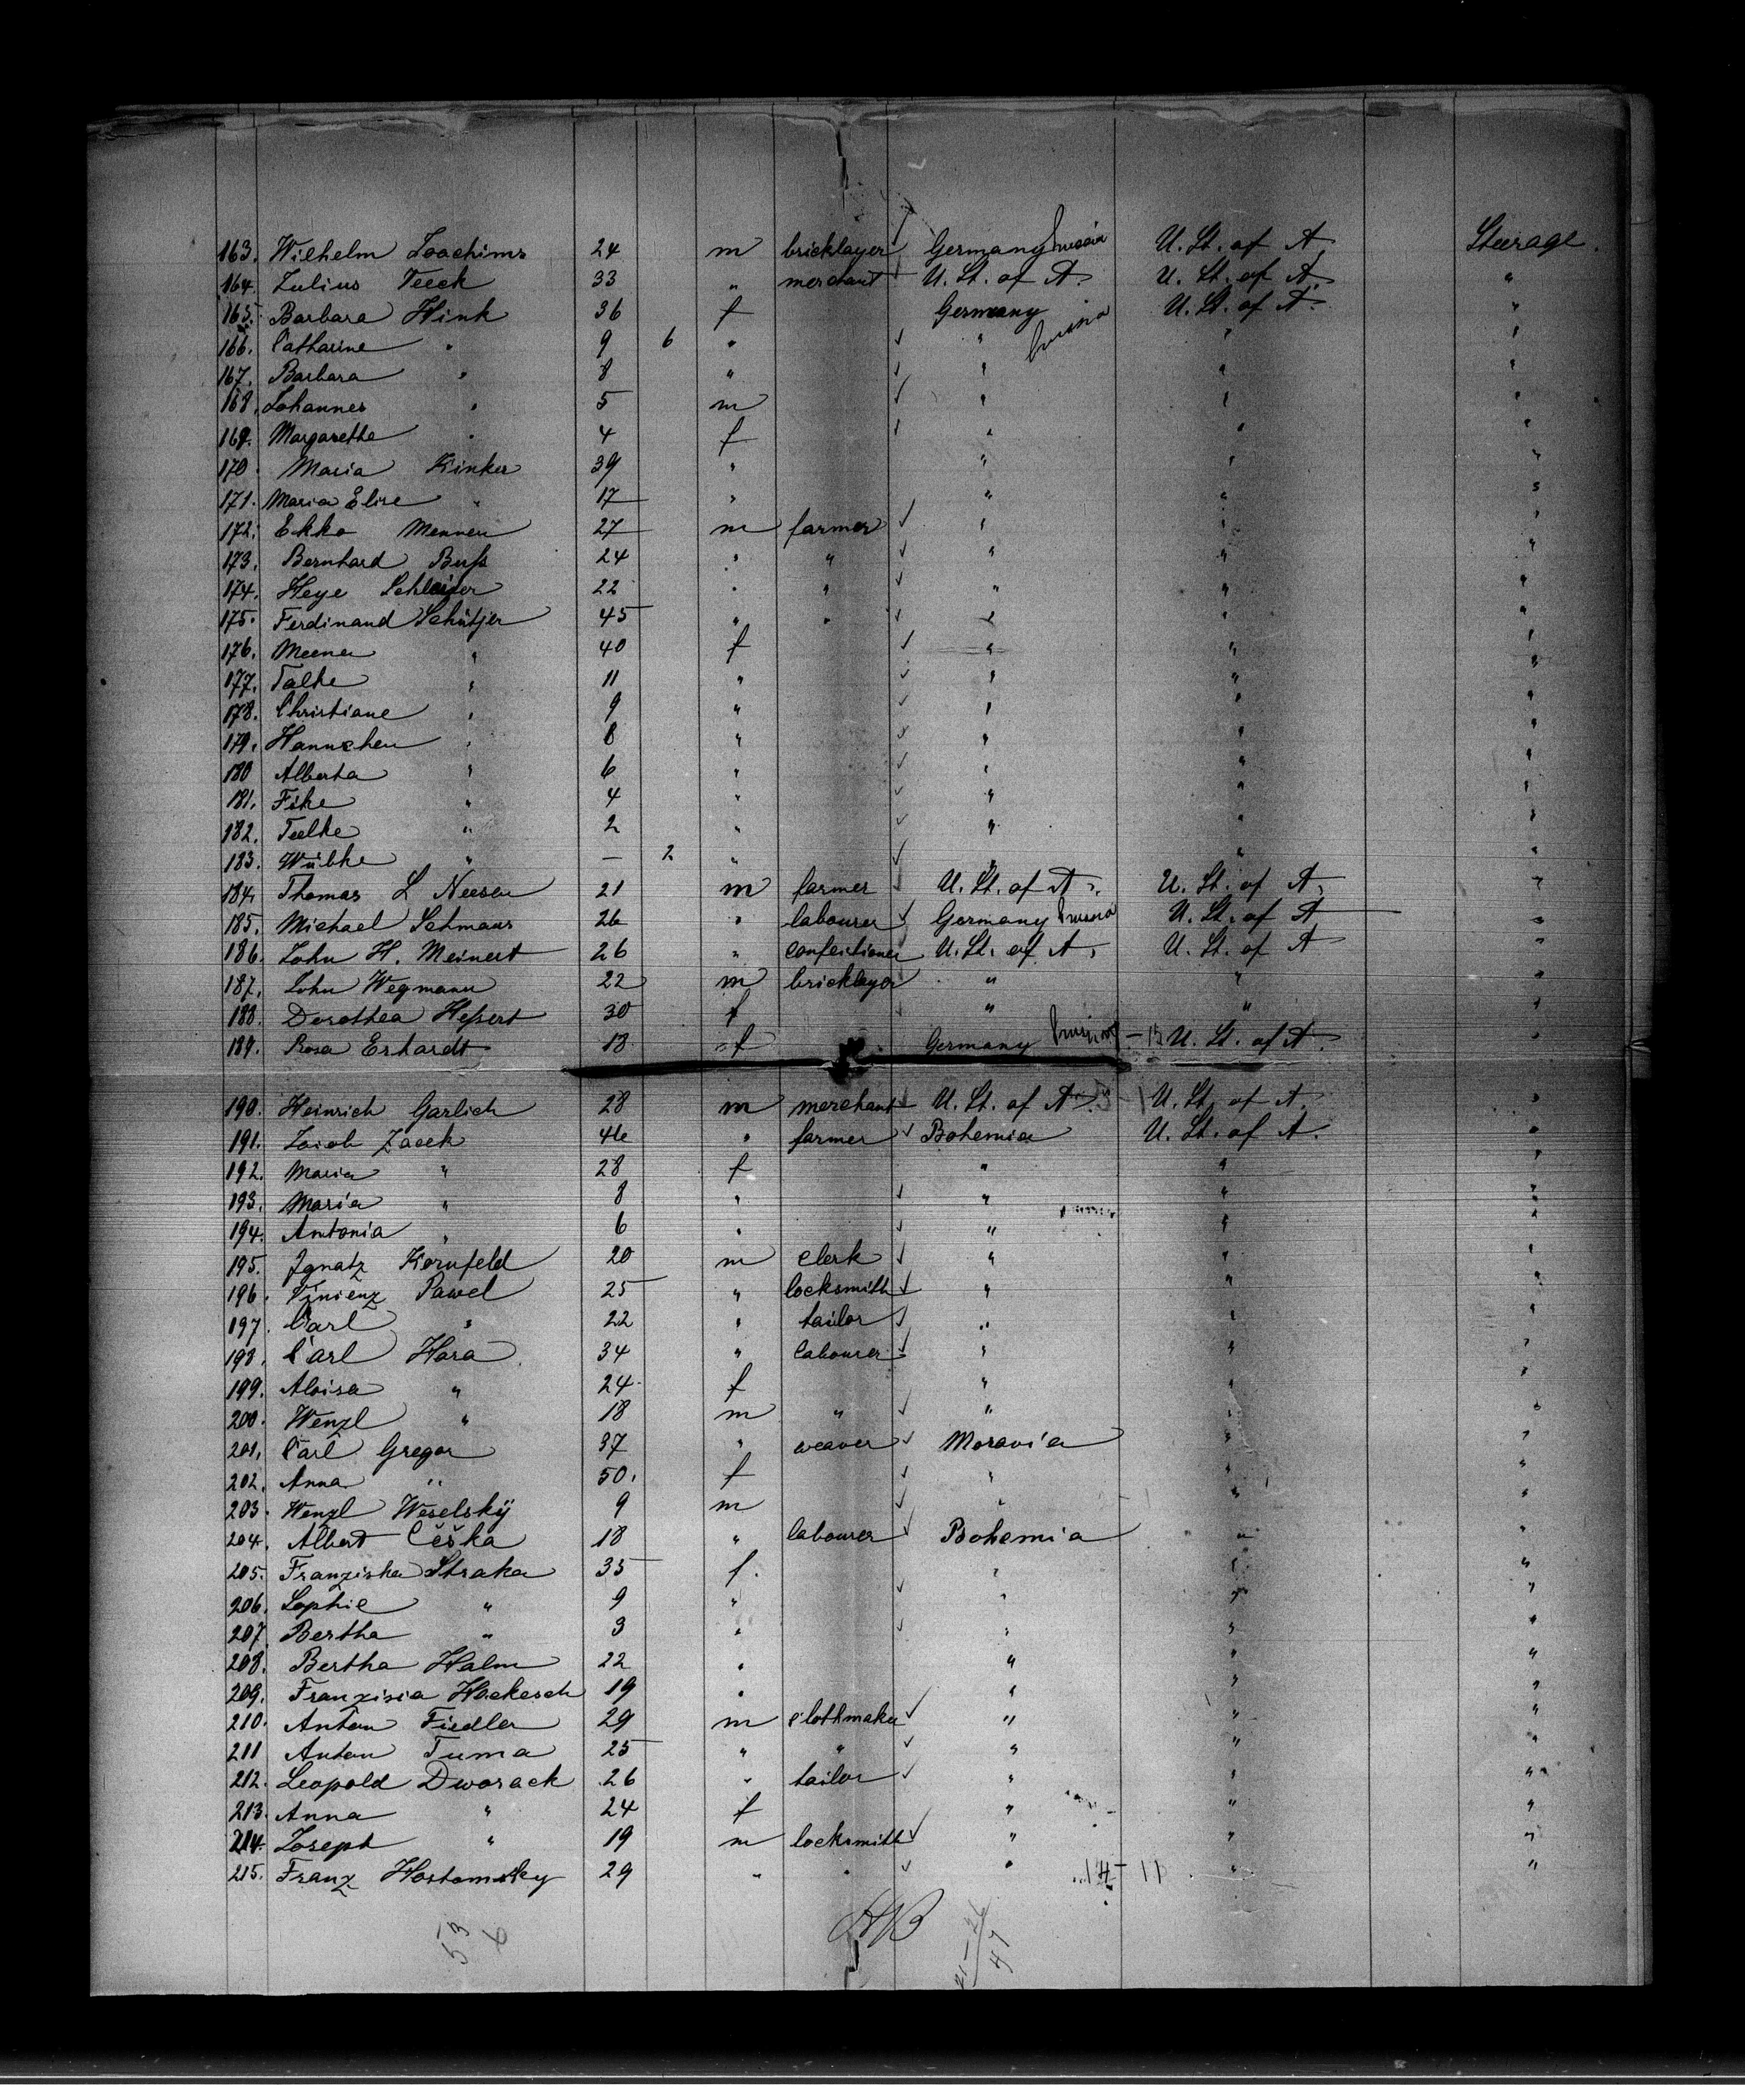 163. Wilhelm Joachims 24 m bricklayer Germany Prussia U. St. of A. Steerage.
164. Julius Teeck 33 " merchant U. St. of A. U. St. of A. "
165. Barbara Hink 36 f Germany Prussia U. St. of A. "
166. Catharine " 9 6 " " " "
167. Barbara " 8 " " " "
168. Johannes " 5 m " " "
169. Margarethe " 4 f " " "
170 Maria Kinker 39 " " " "
171. Maria Elise " 17 " " " "
172. Ekko Mennen 27 m farmer " " "
173. Bernhard Buß 24 " " " " "
174. Heye Schleifer 22 " " " " "
175. Ferdinand Schütjer 45 " " " " "
176. Meena " 40 f " " "
177. Talke " 11 " " " "
178. Christiane " 9 " " " "
179. Hannchen " 8 " " " "
180 Alberta " 6 " " " "
181. Fike " 4 " " " "
182. Teelke " 2 " " " "
183. Wübke " — 2 " " " "
184. Thomas L Neesen 21 m farmer U. St. of A. U. St. of A. "
185. Michael Schmaus 26 " labourer Germany Prussia U. St. of A "
186. John H. Meinert 26 " confectioner U. St. of A. U. St. of A "
187. John Wegmann 22 m bricklayer " " "
188. Dorothea Heßert 30 f " " "
189. Rosa Erhardt 18 " f Germany Prussia — 15 U. St. of A. "
190. Heinrich Garlich 28 m merchant U. St. of A. U. St. of A. "
191. Jacob Zacek 46 " farmer Bohemia U. St. of A. "
192. Maria " 28 f " " "
193. Maria " 8 " " " "
194. Antonia " 6 " " " "
195. Ignatz Kornfeld 20 m clerk " " "
196. Vinienz Pawel 25 " locksmith " " "
197. Carl " 22 " tailor " " "
198. Carl Hora 34 " labourer " " "
199. Aloisa " 24 f " " "
200. Wenzl " 18 m " " " "
201. Carl Gregor 37 " weaver Moravia " "
202. Anna " 50. f " " "
203. Wenzl Weselskÿ 9 m " " "
204. Albert Češka 18 " labourer Bohemia " "
205. Franziska Straka 35 f. " " "
206. Sophie " 9 " " " "
207. Bertha " 3 " " " "
208. Bertha Halm 22 " " " "
209. Franzisia Hockesch 19 " " " "
210. Anton Fiedler 29 m clothmaker " " "
211 Anton Tuma 25 " " " " "
212. Leopold Dworack 26 " tailor " " "
213. Anna " 24 f " " "
214. Joseph " 19 m locksmith " " "
215. Franz Hostomsky 29 " " " 14 — 11 " "
53
6
21 — 26
47